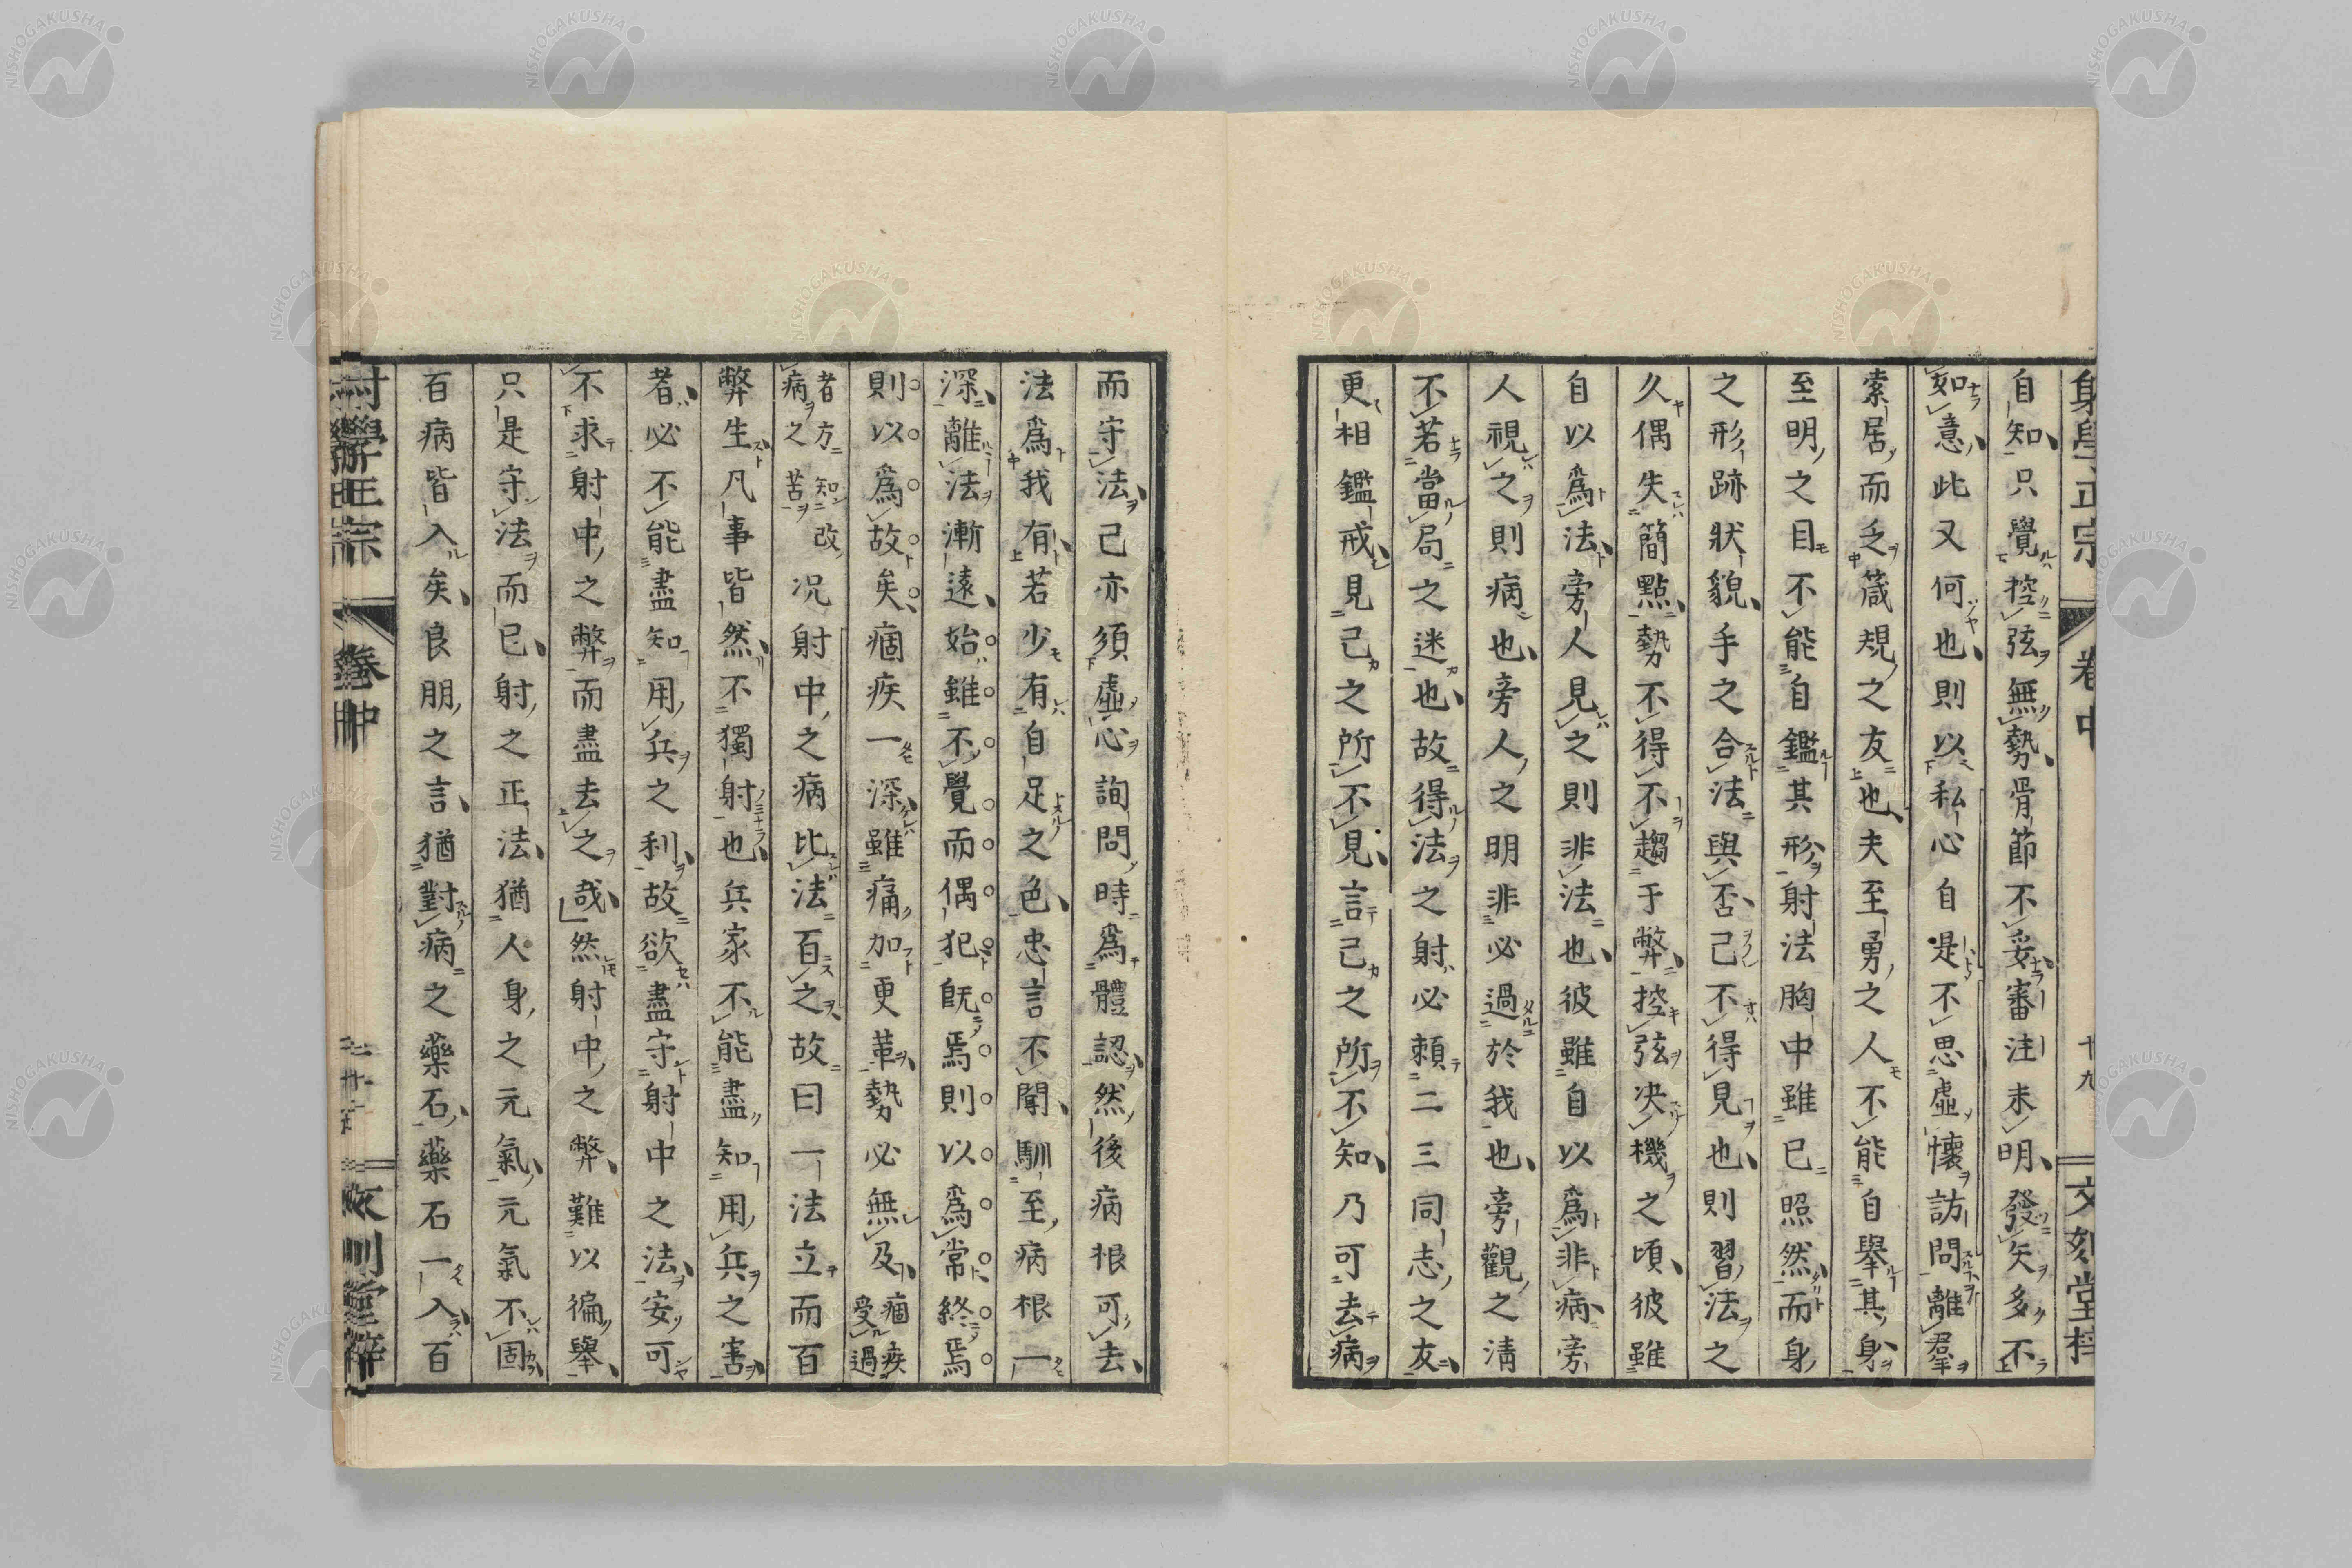 射學正宗 卷中 十九 文刻堂梓
自知只覺控弦無勢骨節不妥審注未明發矢多不
如意此又何也則以私心自是不思虛懷訪問離羣
索居而乏箴規之友也夫至勇之人不能自舉其身
至明之目不能自鑑其形射法胸中雖已照然而身
之形跡狀貌手之合法與否己不得見也則習法之
久偶失簡點勢不得不趨于弊控弦决機之頃彼雖
自以爲法旁人見之則非法也彼雖自以爲非病旁
人視之則病也旁人之明非必過於我也旁觀之淸
不若當局之迷也故得法之射必頼二三同志之友
更相鑑戒見己之所不見言己之所不知乃可去病
而守法己亦須虛心詢問時爲體認然後病根可去
法爲我有若少有自足之色忠言不聞馴至病根一
深離法漸遠始雖不覺而偶犯旣焉則以爲常終焉
則以爲故矣痼疾一深雖痛加更革勢必無及痼疾受過
者方知改病之苦况射中之病比法百之故曰一法立而百
弊生凡事皆然不獨射也兵家不能盡知用兵之害
者必不能盡知用兵之利故欲盡守射中之法安可
不求射中之弊而盡去之哉然射中之弊難以徧舉
只是守法而已射之正法猶人身之元氣元氣不固
百病皆入矣良朋之言猶對病之藥石藥石一入百
卷中